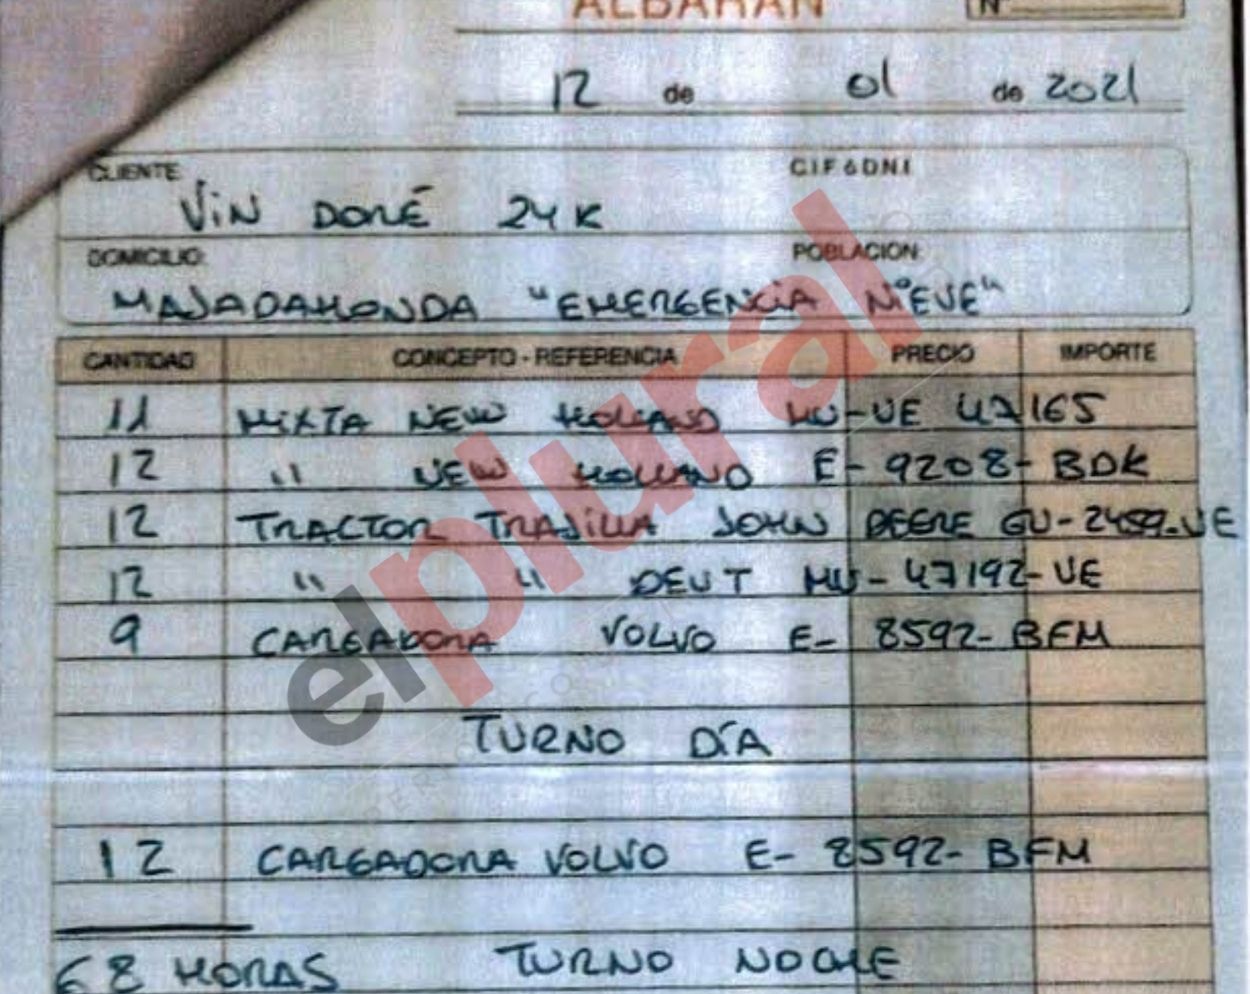 ALBARAN
Nº
12 de 01 de 2021
CLIENTE: C.I.F. ó D.N.I.
VIN DORÉ 24K
DOMICILIO: POBLACION:
MAJADAHONDA "EMERGENCIA NIEVE"
CANTIDAD CONCEPTO - REFERENCIA PRECIO IMPORTE
11 MIXTA NEW HOLLAND MU-VE 47165
12 " NEW HOLLAND E-9208-BDK
12 TRACTOR TRAJILLA JOHN DEERE GU-2459-VE
12 " " DEUT MU-47192-VE
9 CARGADORA VOLVO E-8592-BFM
TURNO DÍA
12 CARGADORA VOLVO E-8592-BFM
68 HORAS TURNO NOCHE
elplural